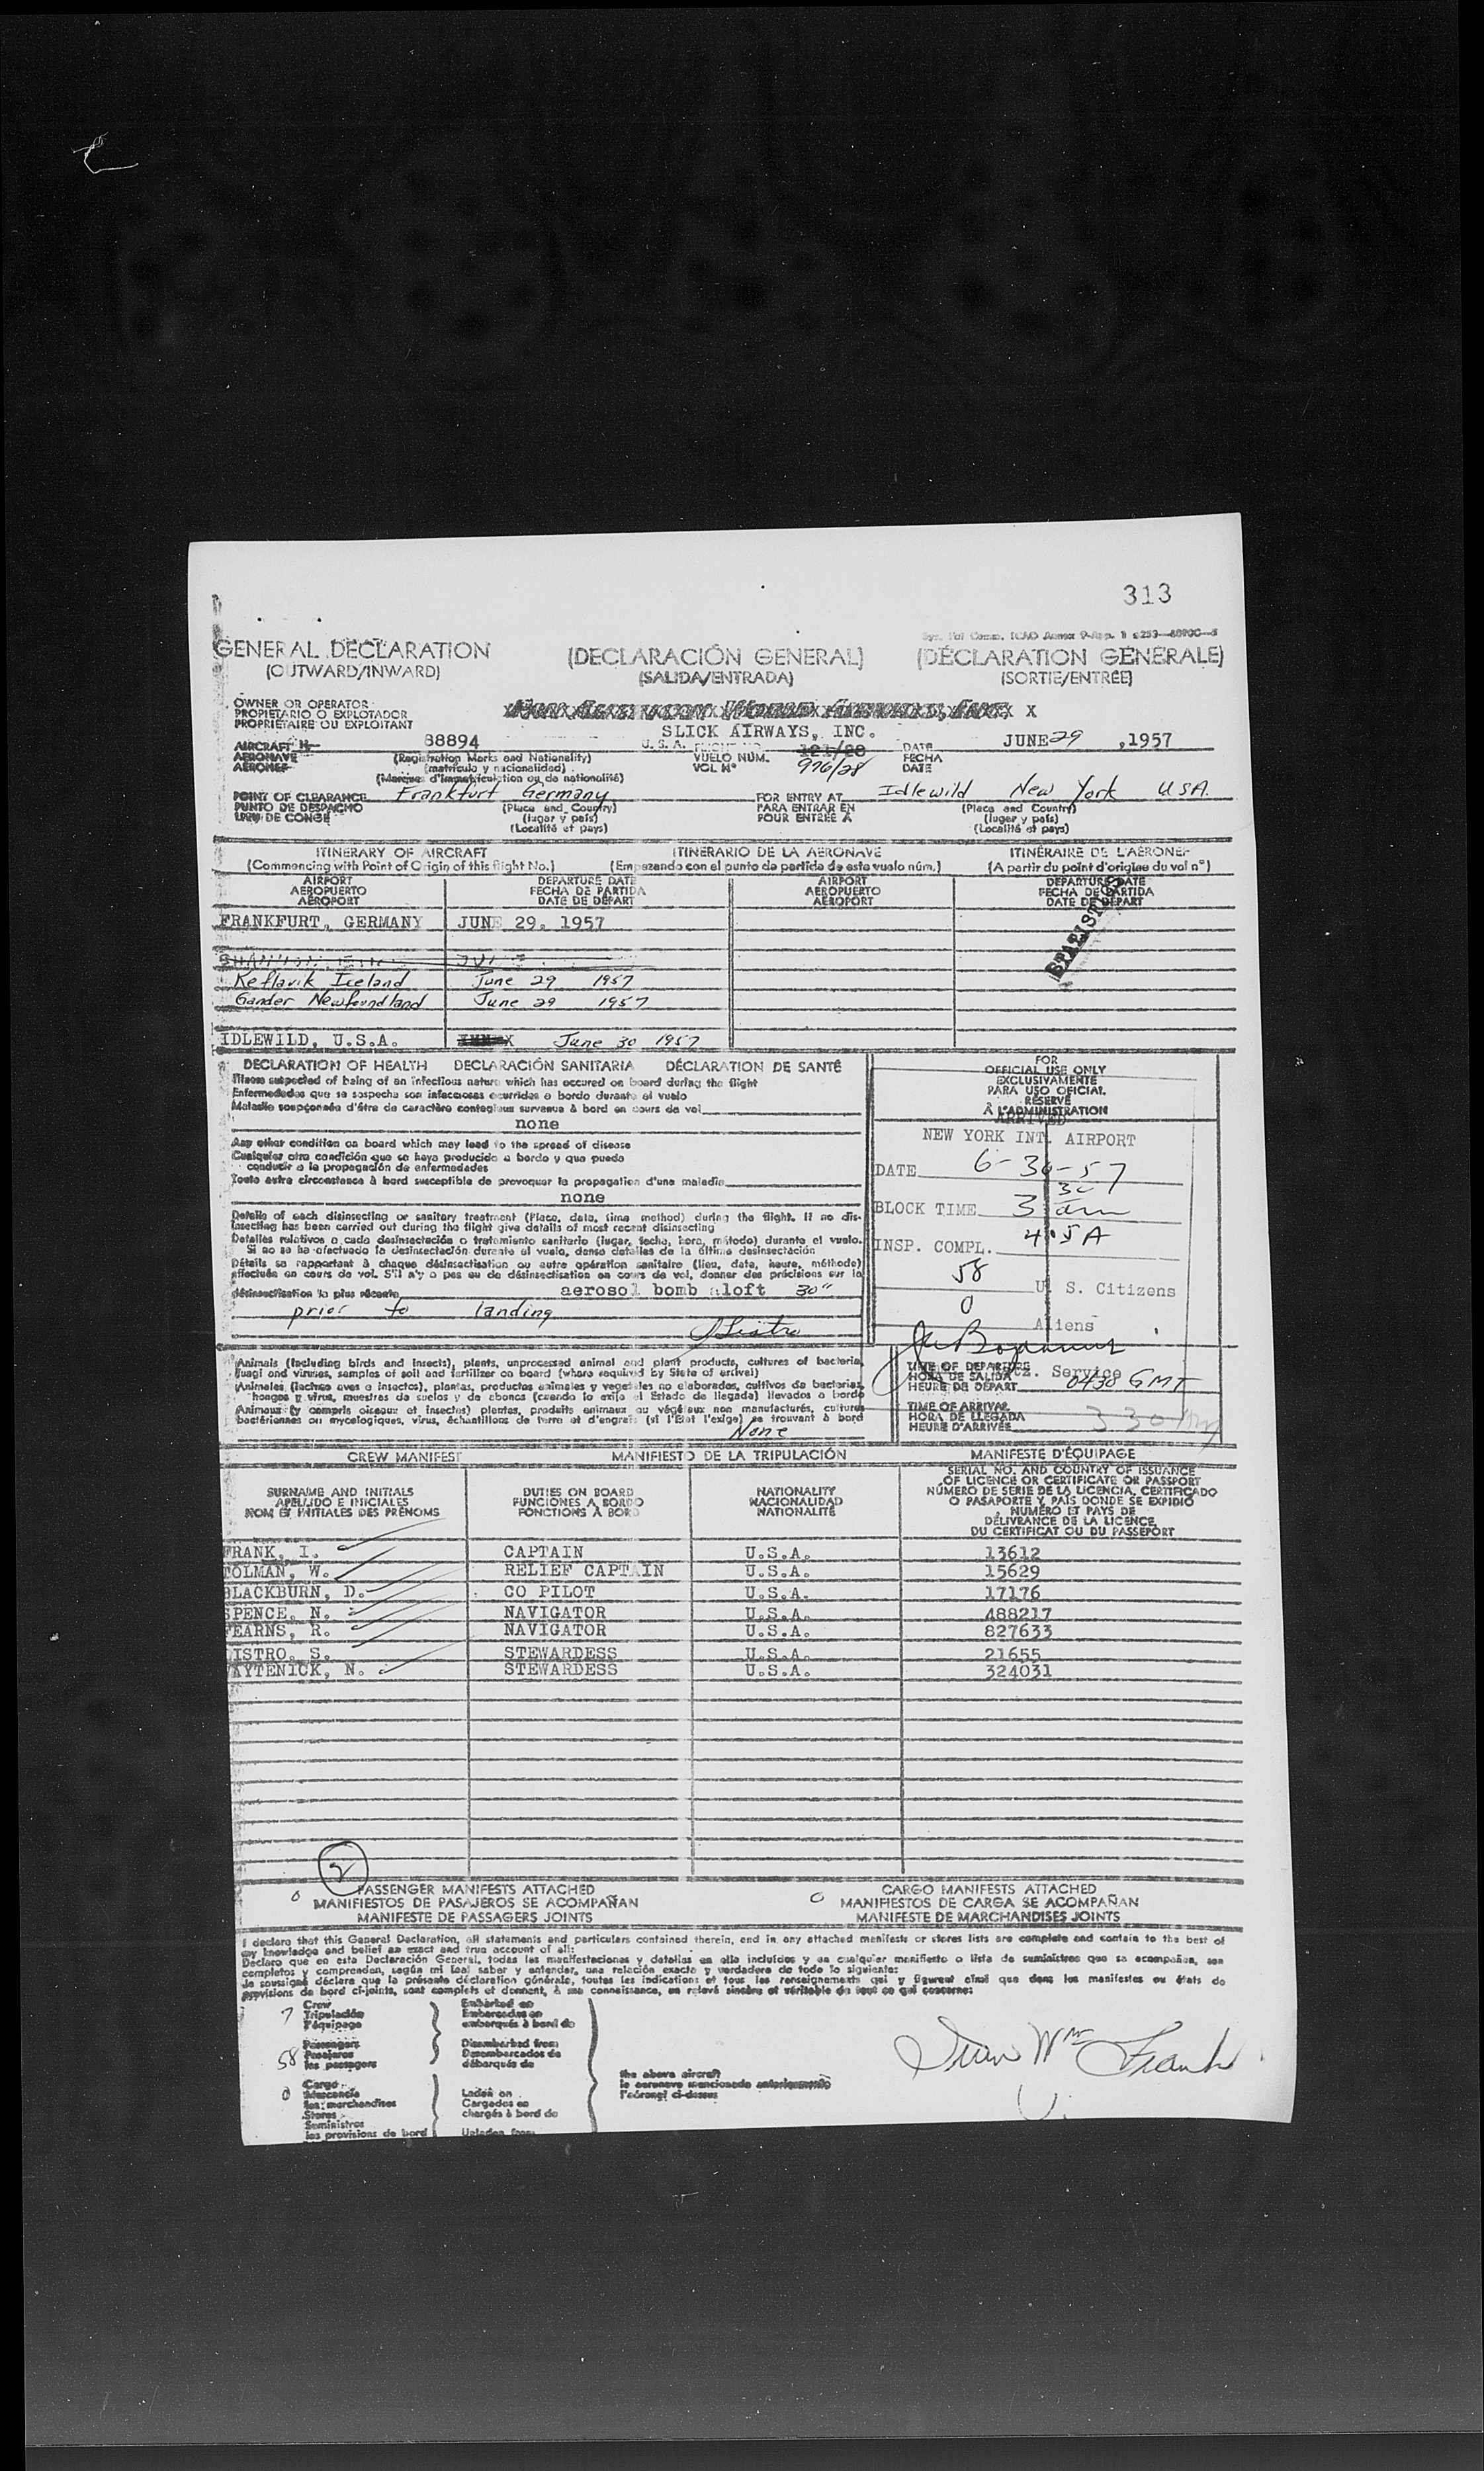 313
GENERAL DECLARATION
(OUTWARD/INWARD)
(DECLARACIÓN GENERAL)
(SALIDA/ENTRADA)
(DÉCLARATION GÉNÉRALE)
(SORTIE/ENTRÉE)
OWNER OR OPERATOR
PROPIETARIO O EXPLOTADOR
PROPRIÉTAIRE OU EXPLOITANT
SLICK AIRWAYS, INC.
AIRCRAFT N 88894
AERONAVE
AÉRONEF
(Registration Marks and Nationality)
(matrícula y nacionalidad)
(Marques d'immatriculation ou de nationalité)
U.S.A.
VUELO NÚM.
VOL Nº
121/28
976/28
DATE
FECHA
DATE
JUNE 29, 1957
POINT OF CLEARANCE Frankfurt Germany
PUNTO DE DESPACHO
LIEU DE CONGÉ
(Place and Country)
(lugar y país)
(Localité et pays)
FOR ENTRY AT Idlewild New York USA
PARA ENTRAR EN
POUR ENTRÉE À
(Place and Country)
(lugar y país)
(Localité et pays)
ITINERARY OF AIRCRAFT ITINERARIO DE LA AERONAVE ITINÉRAIRE DE L'AÉRONEF
(Commencing with Point of Origin of this flight No.) (Empezando con el punto de partida de este vuelo núm.) (A partir du point d'origine du vol nº)
AIRPORT
AEROPUERTO
AÉROPORT
DEPARTURE DATE
FECHA DE PARTIDA
DATE DE DÉPART
AIRPORT
AEROPUERTO
AÉROPORT
DEPARTURE DATE
FECHA DE PARTIDA
DATE DE DÉPART
FRANKFURT, GERMANY JUNE 29, 1957
Keflavik Iceland June 29 1957
Gander Newfoundland June 29 1957
IDLEWILD, U.S.A. June 30 1957
DECLARATION OF HEALTH DECLARACIÓN SANITARIA DÉCLARATION DE SANTÉ
Illness suspected of being of an infectious nature which has occured on board during the flight
Enfermedades que se sospecha son infecciosas ocurridas a bordo durante el vuelo
Maladie soupçonnée d'être de caractère contagieux survenue à bord en cours de vol
none
Any other condition on board which may lead to the spread of disease
Cualquier otra condición que se haya producido a bordo y que pueda
conducir a la propagación de enfermedades
Toute autre circonstance à bord susceptible de provoquer la propagation d'une maladie
none
Details of each disinsecting or sanitary treatment (Place, date, time method) during the flight. If no dis-
insecting has been carried out during the flight give details of most recent disinsecting
Detalles relativos a cada desinsectación o tratamiento sanitario (lugar, fecha, hora, método) durante el vuelo.
Si no se ha efectuado la desinsectación durante el vuelo, dense detalles de la última desinsectación
Détails se rapportant à chaque désinsectisation ou autre opération sanitaire (lieu, date, heure, méthode)
effectuée en cours de vol. S'il n'y a pas eu de désinsectisation en cours de vol, donner des précisions sur la
désinsectisation la plus récente aerosol bomb aloft 30"
prior to landing
FOR
OFFICIAL USE ONLY
EXCLUSIVAMENTE
PARA USO OFICIAL
RÉSERVÉ
À L'ADMINISTRATION
ARRIVED
NEW YORK INT. AIRPORT
DATE 6-30-57
BLOCK TIME 330 am
INSP. COMPL. 405A
58 U. S. Citizens
0 Aliens
Animals (including birds and insects), plants, unprocessed animal and plant products, cultures of bacteria,
fungi and viruses, samples of soil and fertilizer on board (where required by State of arrival)
Animales (incluso aves e insectos), plantas, productos animales y vegetales no elaborados, cultivos de bacterias,
hongos y virus, muestras de suelos y de abonos (cuando lo exija el Estado de llegada) llevados a bordo
Animaux (y compris oiseaux et insectes) plantes, produits animaux ou végétaux non manufacturés, cultures
bactériennes ou mycologiques, virus, échantillons de terre et d'engrais (si l'Etat l'exige) se trouvant à bord
None
TIME OF DEPARTURE
HORA DE SALIDA
HEURE DE DÉPART 0430 GMT
Service
TIME OF ARRIVAL
HORA DE LLEGADA
HEURE D'ARRIVÉE 330
CREW MANIFEST MANIFIESTO DE LA TRIPULACIÓN MANIFESTE D'ÉQUIPAGE
SURNAME AND INITIALS
APELLIDO E INICIALES
NOM ET INITIALES DES PRÉNOMS
DUTIES ON BOARD
FUNCIONES A BORDO
FONCTIONS À BORD
NATIONALITY
NACIONALIDAD
NATIONALITÉ
SERIAL NO. AND COUNTRY OF ISSUANCE
OF LICENCE OR CERTIFICATE OR PASSPORT
NÚMERO DE SERIE DE LA LICENCIA, CERTIFICADO
O PASAPORTE Y PAÍS DONDE SE EXPIDIÓ
NUMÉRO ET PAYS DE
DÉLIVRANCE DE LA LICENCE,
DU CERTIFICAT OU DU PASSEPORT
FRANK, I. CAPTAIN U.S.A. 13612
TOLMAN, W. RELIEF CAPTAIN U.S.A. 15629
BLACKBURN, D. CO PILOT U.S.A. 17176
SPENCE, N. NAVIGATOR U.S.A. 488217
FEARNS, R. NAVIGATOR U.S.A. 827633
ISTRO, S. STEWARDESS U.S.A. 21655
AYTENICK, N. STEWARDESS U.S.A. 324031
2
0 PASSENGER MANIFESTS ATTACHED
MANIFIESTOS DE PASAJEROS SE ACOMPAÑAN
MANIFESTE DE PASSAGERS JOINTS
0 CARGO MANIFESTS ATTACHED
MANIFIESTOS DE CARGA SE ACOMPAÑAN
MANIFESTE DE MARCHANDISES JOINTS
I declare that this General Declaration, all statements and particulars contained therein, and in any attached manifests or stores lists are complete and contain to the best of
my knowledge and belief an exact and true account of all:
Declaro que en esta Declaración General, todas las manifestaciones y detalles en ella incluidos y en cualquier manifiesto o lista de suministros que se acompañan, son
completos y comprenden, según mi leal saber y entender, una relación exacta y verdadera de todo lo siguiente:
Je soussigné déclare que la présente déclaration générale, toutes les indications et tous les renseignements qui y figurent ainsi que dans les manifestes ou états de
provisions de bord ci-joints, sont complets et donnent, à ma connaissance, un relevé sincère et véritable de tout ce qui concerne:
7 Crew
Tripulación
l'équipage
58 Passengers
Pasajeros
les passagers
0 Cargo
Mercancía
les marchandises
Stores
Suministros
les provisions de bord
Embarked on
Embarcados en
embarqués à bord de
Disembarked from
Desembarcados de
débarqués de
Laden on
Cargados en
chargés à bord de
Unladen from
the above aircraft
la aeronave mencionada anteriormente
l'aéronef ci-dessus
Ivan Wm Frank